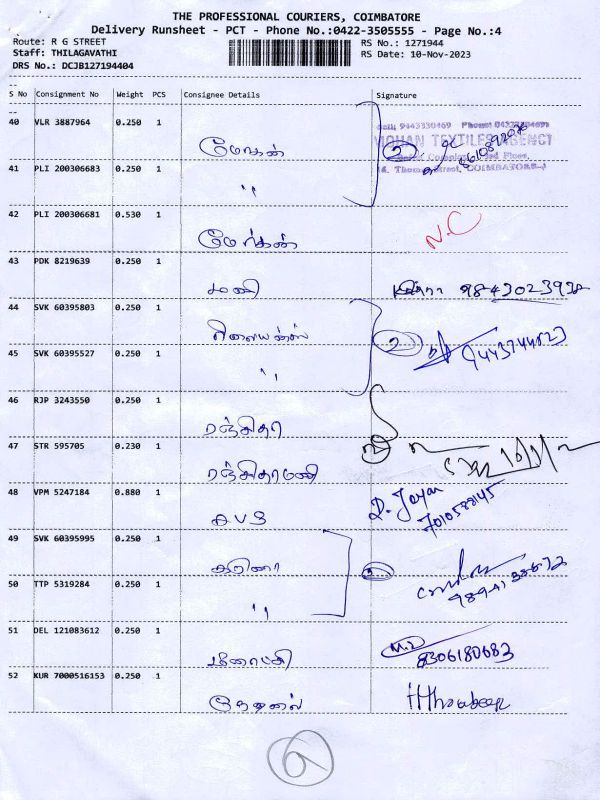 THE PROFESSIONAL COURIERS, COIMBATORE
Delivery Runsheet - PCT - Phone No.:0422-3505555 - Page No.:4
Route: R G STREET
Staff: THILAGAVATHI
DRS No.: DCJB127194404
RS No.: 1271944
RS Date: 10-Nov-2023
S No Consignment No Weight PCS Consignee Details Signature
40 VLR 3887964 0.250 1
மோகன்
Cell: 9443330469
MOHAN TEXTILES AGENCY
COIMBATORE-1
2
41 PLI 200306683 0.250 1
"
42 PLI 200306681 0.530 1
மோகன்
N.C
43 PDK 8219639 0.250 1
மணி
9843023938
44 SVK 60395803 0.250 1
ரிலையன்ஸ்
2
45 SVK 60395527 0.250 1
"
46 RJP 3243550 0.250 1
ரஞ்சிதா
47 STR 595705 0.230 1
ரஞ்சிதாமணி
48 VPM 5247184 0.880 1
AVS
7010588145
49 SVK 60395995 0.250 1
கரிஷா
50 TTP 5319284 0.250 1
"
51 DEL 121083612 0.250 1
மீனாட்சி
8306180683
52 KUR 7000516153 0.250 1
6